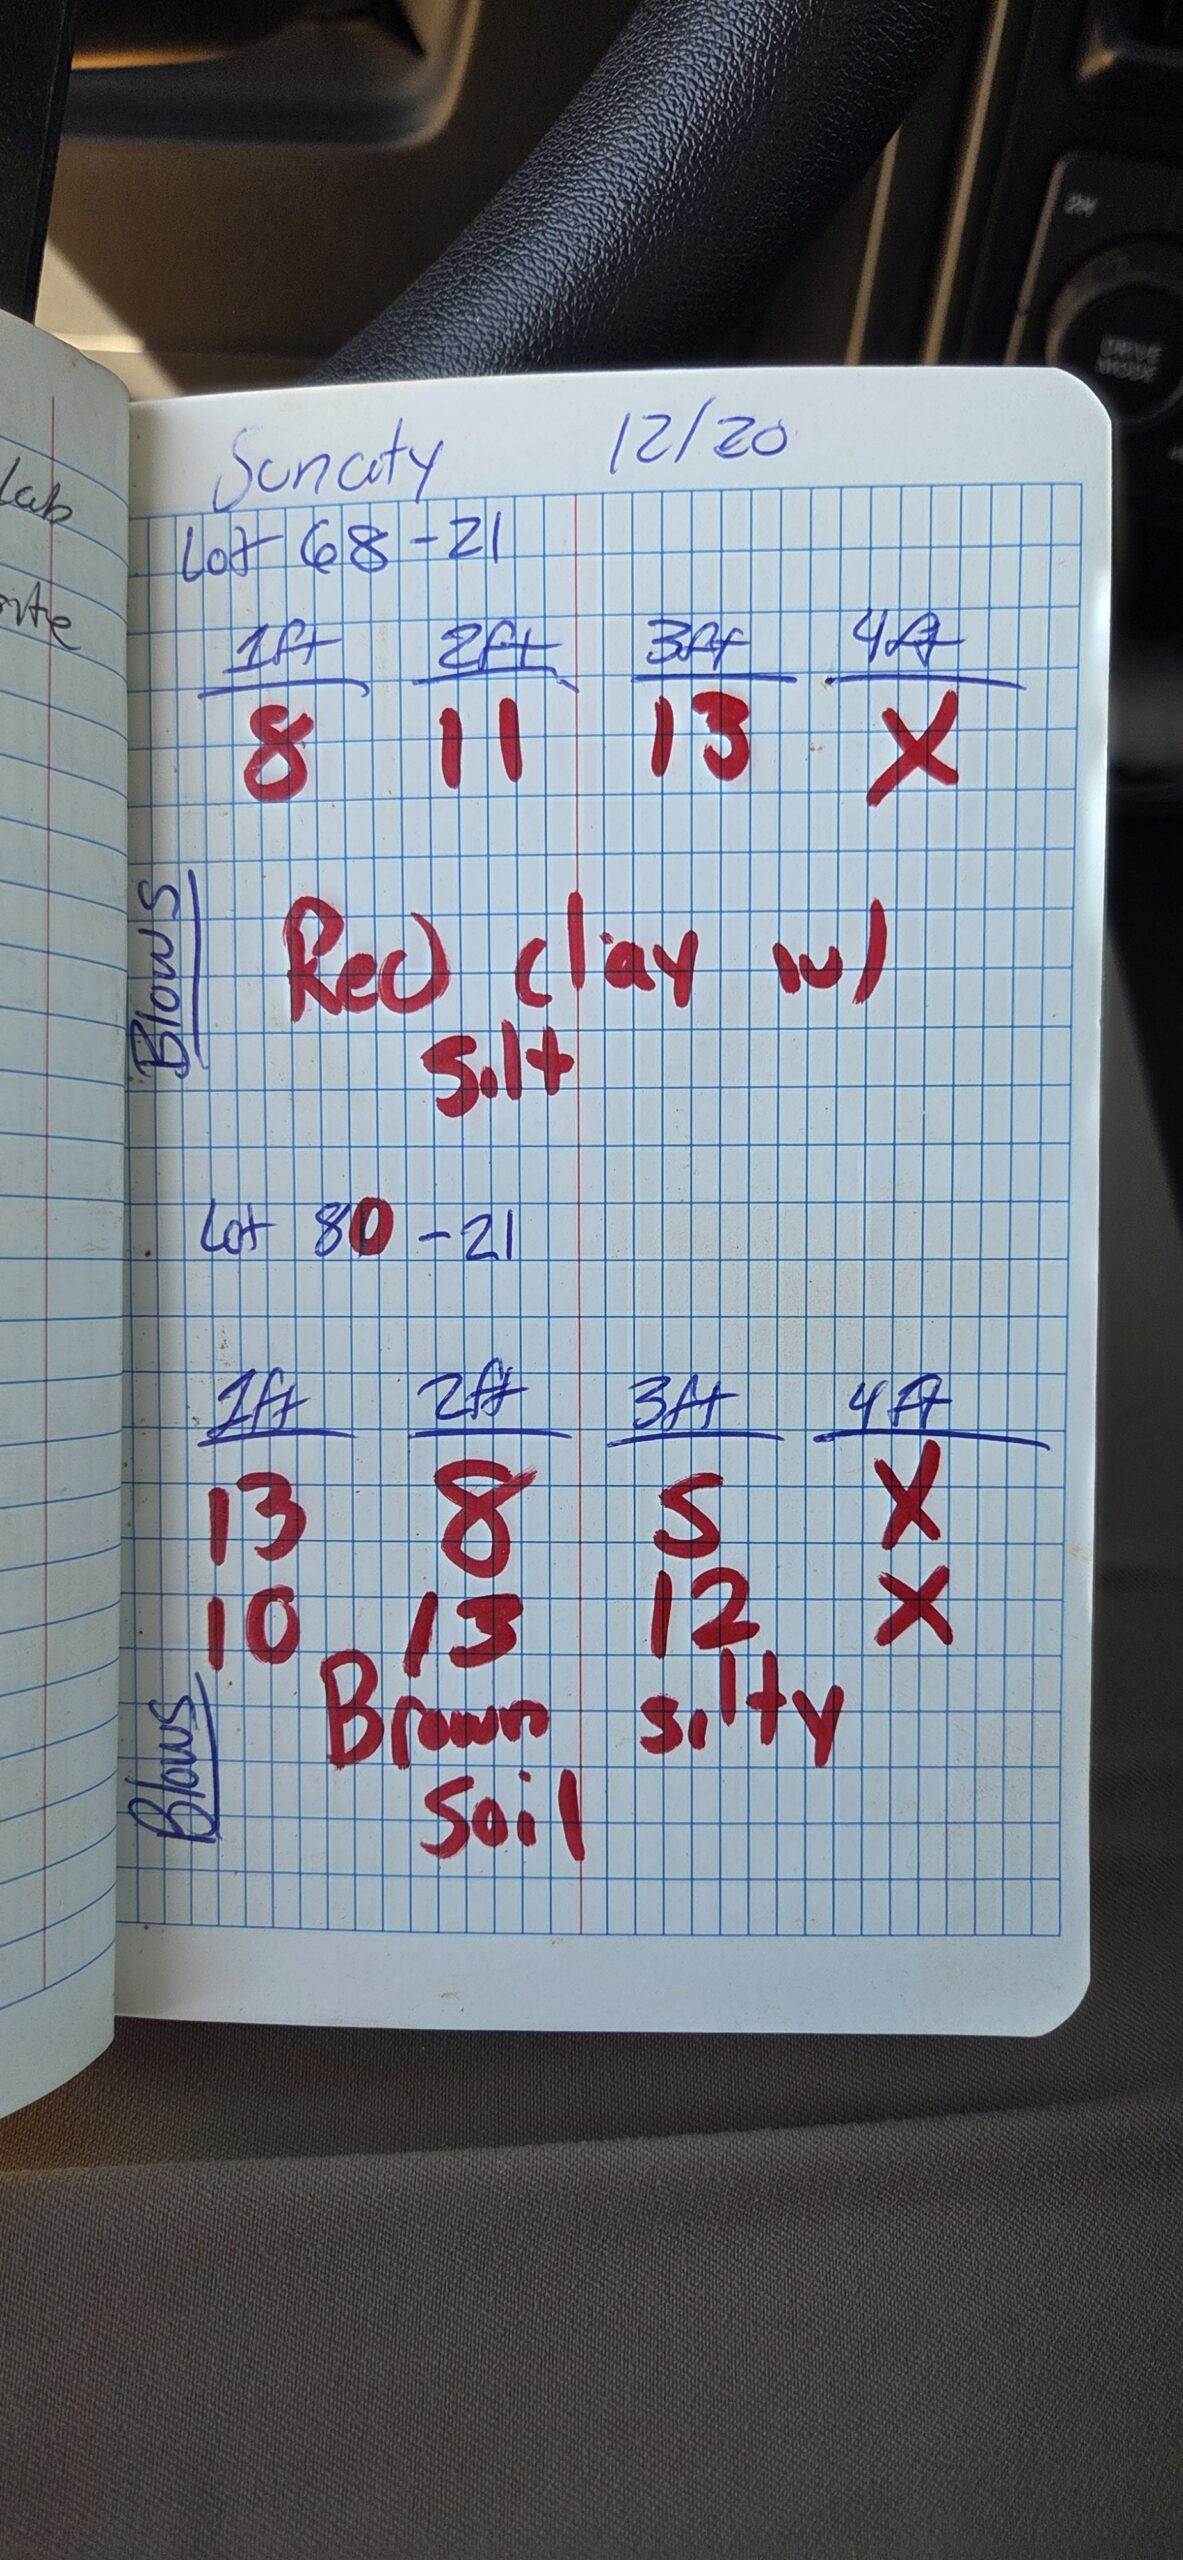 Suncity 12/20
Lot 68-21
1ft 2ft 3ft 4ft
8 11 13 X
Blows
Red clay w/
silt
Lot 80-21
1ft 2ft 3ft 4ft
13 8 5 X
10 13 12 X
Blows
Brown silty
soil
lab
DRIVE
MODE